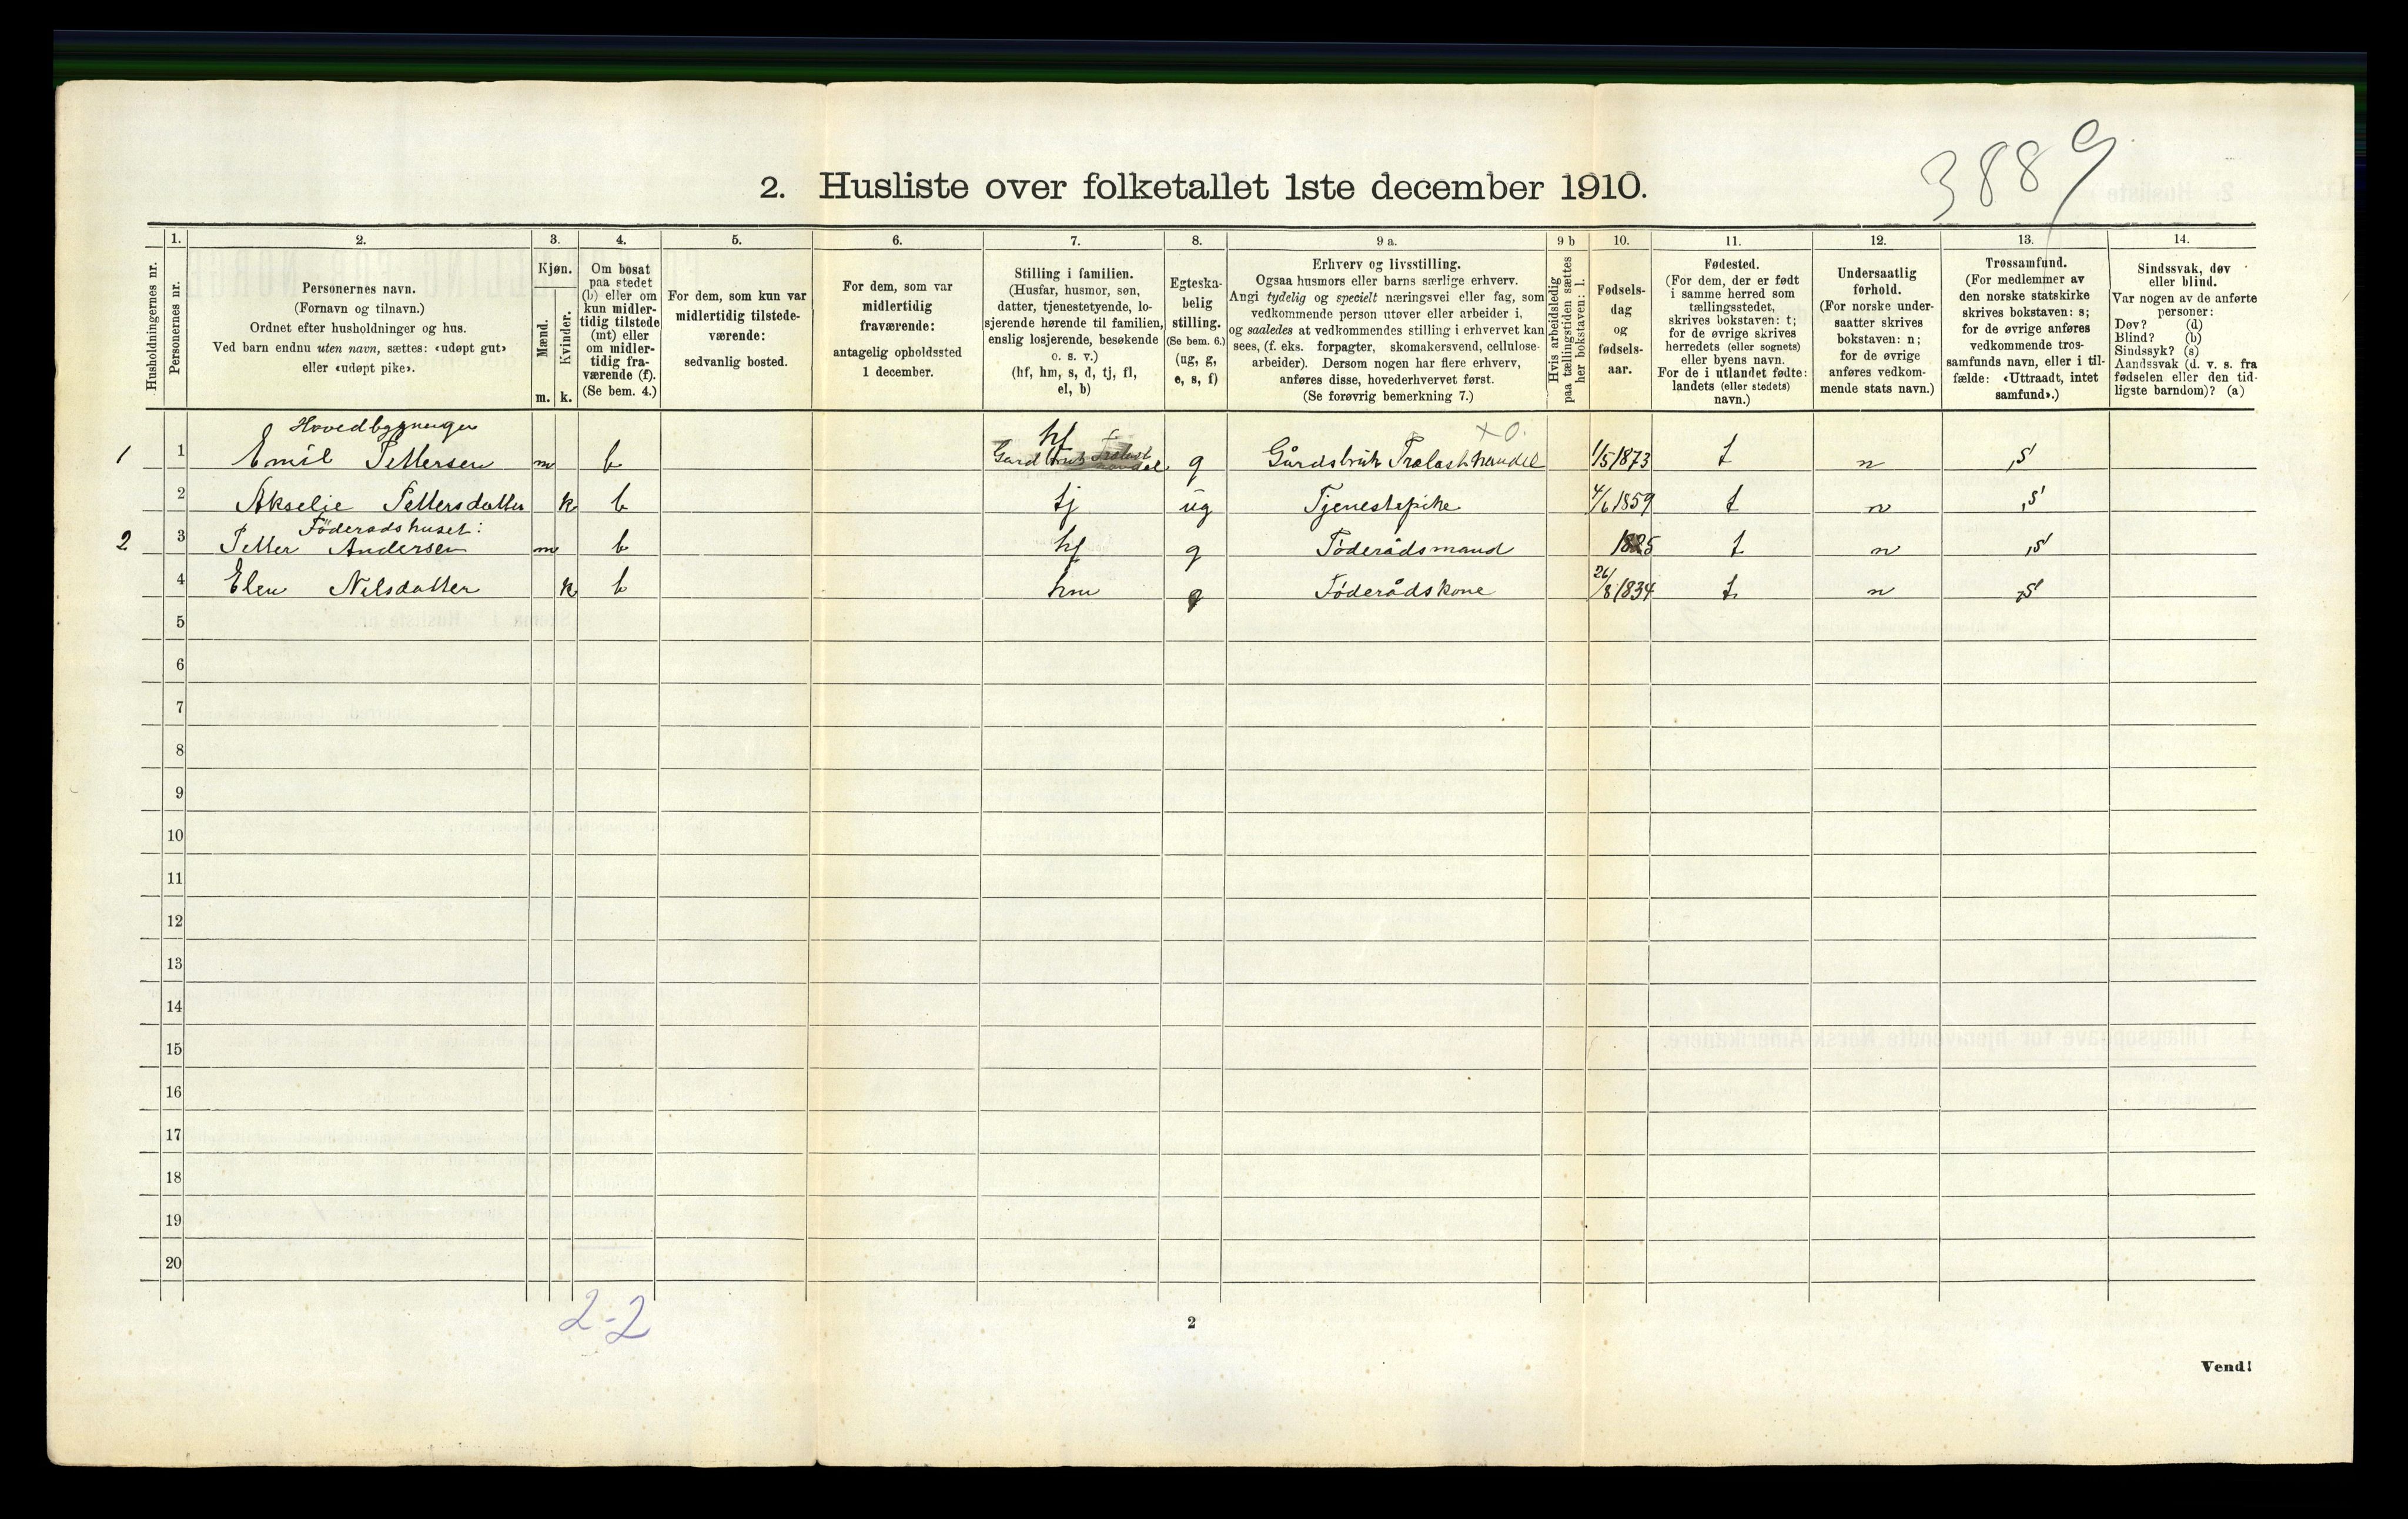 3889
2. Husliste over folketallet 1ste december 1910.
Husholdningernes nr.
1.
Personernes nr.
2.
Personernes navn.
(Fornavn og tilnavn.)
Ordnet efter husholdninger og hus.
Ved barn endnu uten navn, sættes: «udøpt gut»
eller «udøpt pike».
3.
Kjøn.
Mænd.
Kvinder.
m. k.
4.
Om bosat
paa stedet
(b) eller om
kun midler-
tidig tilstede
(mt) eller
om midler-
tidig fra-
værende (f).
(Se bem. 4.)
5.
For dem, som kun var
midlertidig tilstede-
værende:
sedvanlig bosted.
6.
For dem, som var
midlertidig
fraværende:
antagelig opholdssted
1 december.
7.
Stilling i familien.
(Husfar, husmor, søn,
datter, tjenestetyende, lo-
sjerende hørende til familien,
enslig losjerende, besøkende
o. s. v.)
(hf, hm, s, d, tj, fl,
el, b)
8.
Egteska-
belig
stilling.
(Se bem. 6.)
(ug, g,
e, s, f)
9 a.
Erhverv og livsstilling.
Ogsaa husmors eller barns særlige erhverv.
Angi tydelig og specielt næringsvei eller fag, som
vedkommende person utøver eller arbeider i,
og saaledes at vedkommendes stilling i erhvervet kan
sees, (f. eks. forpagter, skomakersvend, cellulose-
arbeider). Dersom nogen har flere erhverv,
anføres disse, hovederhvervet først.
(Se forøvrig bemerkning 7.)
9 b
Hvis arbeidsledig
paa tællingstiden sættes
her bokstaven: l.
10.
Fødsels-
dag
og
fødsels-
aar.
11.
Fødested.
(For dem, der er født
i samme herred som
tællingsstedet,
skrives bokstaven: t;
for de øvrige skrives
herredets (eller sognets)
eller byens navn.
For de i utlandet fødte:
landets (eller stedets)
navn.)
12.
Undersaatlig
forhold.
(For norske under-
saatter skrives
bokstaven: n;
for de øvrige
anføres vedkom-
mende stats navn.)
13.
Trossamfund.
(For medlemmer av
den norske statskirke
skrives bokstaven: s;
for de øvrige anføres
vedkommende tros-
samfunds navn, eller i til-
fælde: «Uttraadt, intet
samfund».)
14.
Sindssvak, døv
eller blind.
Var nogen av de anførte
personer:
Døv? (d)
Blind? (b)
Sindssyk? (s)
Aandssvak (d. v. s. fra
fødselen eller den tid-
ligste barndom)? (a)
Hovedbygningen
1 1 Emil Pettersen m b hf g Gårdsbruk Trælasthandel x 0. 1/5 1873 t n s
2 Akselie Pettersdatter k b tj ug Tjenestepike 4/6 1859 t n s
Föderadshuset:
2 3 Petter Andersen m b hf g Föderådsmand 1825 t n s
4 Elen Nilsdatter k b hm g Föderådskone 26/8 1834 t n s
5
6
7
8
9
10
11
12
13
14
15
16
17
18
19
20
2-2
2
Vend!